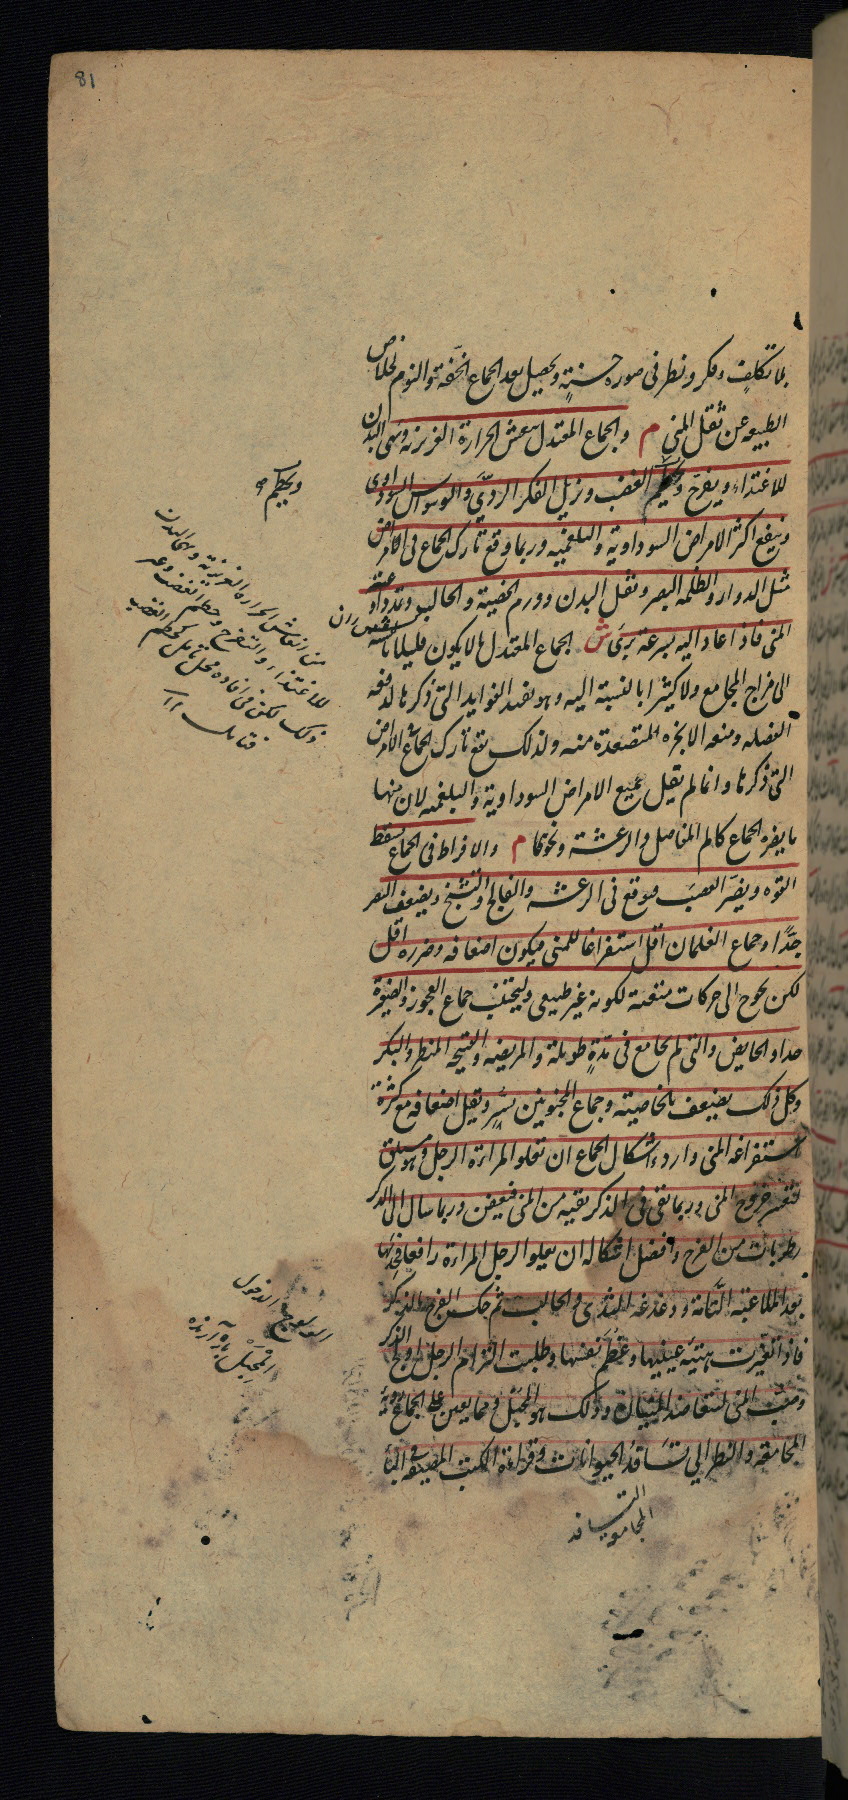 81
بلا تكلف وفكر ونظر في صورة حسنة ويحصل بعد الجماع الخفة والنوم لخلاص
الطبيعة عن ثقل المني م والجماع المعتدل ينعش الحرارة الغريزية ويهيئ البدن
للاغتذاء ويفرح ويحطم الغضب ويزيل الفكر الردي والوسواس السوداوي
وينفع اكثر الامراض السوداوية والبلغمية وربما وقع تارك الجماع في الامراض
مثل الدوار والظلمه البصر وثقل البدن وورم الخصية والحالب
المني فاذا عاد اليه بسرعة برئ ش الجماع المعتدل الا يكون قليلا بالنسبة
الى مزاج المجامع ولا كثيرا بالنسبة اليه وهو يفيد الفوايد التي ذكرنا لدفعه
الفضلة ومنعه الابخره المتصعدة منه ولذلك يقع تارك الجماع في الامراض
التي ذكرنا وانما لم يقل جميع الامراض السوداوية والبلغميه لان منها
ما يضره الجماع كالم المفاصل والرعشة ونحوهما م والافراط في الجماع يسقط
القوه ويضر العصب فيوقع في الرعشه والفالج والتشنج ويضعف البصر
جدا وجماع الغلمان اقل استفراغا للمني فيكون اضعافه وضرره اقل
لكن يحوج الى حركات متعبة لكونه غير طبيعي وليجتنب جماع العجوز والصغيرة
جدا والحايض والتي لم تجامع في مدة طويلة والمريضه والقبيحة المنظر والبكر
وكل ذلك يضعف بالخاصيته وجماع المحبوبين يسر ويقل اضعافه مع كثرة
استفراغه المني واردء اشكال الجماع ان تعلو المراءة الرجل وهو مستلق
لتعسر خروج المني وربما بقي في الذكر بقيه من المني فيعفن وربما سال الى الذكر
رطوبات من الفرج وافضل اشكاله ان يعلو الرجل المراءة رافعا فخذيها
بعد الملاعبة التامة ودغدغه الثدي والحالب ثم حك الفرج بالذكر
فاذا تغيرت هيئة عينيها وعظم نفسها وطلبت التزام الرجل اولج الذكر
وصب المني ليتعاضد المنيان وذلك هو المحبل ومما يعين على الجماع روية
المجامعة والنظر الى تسافد الحيوانات وقراءة الكتب المصنفه في الباه
التسافد
المجامعة
ويحطم
من انعاش الحرارة الغريزية وتهيئ البدن
للاغتذاء والتفرح وحطم الغضب وغير
ذلك لكن في افاده محل تامل لحطم الغضب
فتامل ١٢
الدخول
المحبل بار آرنده